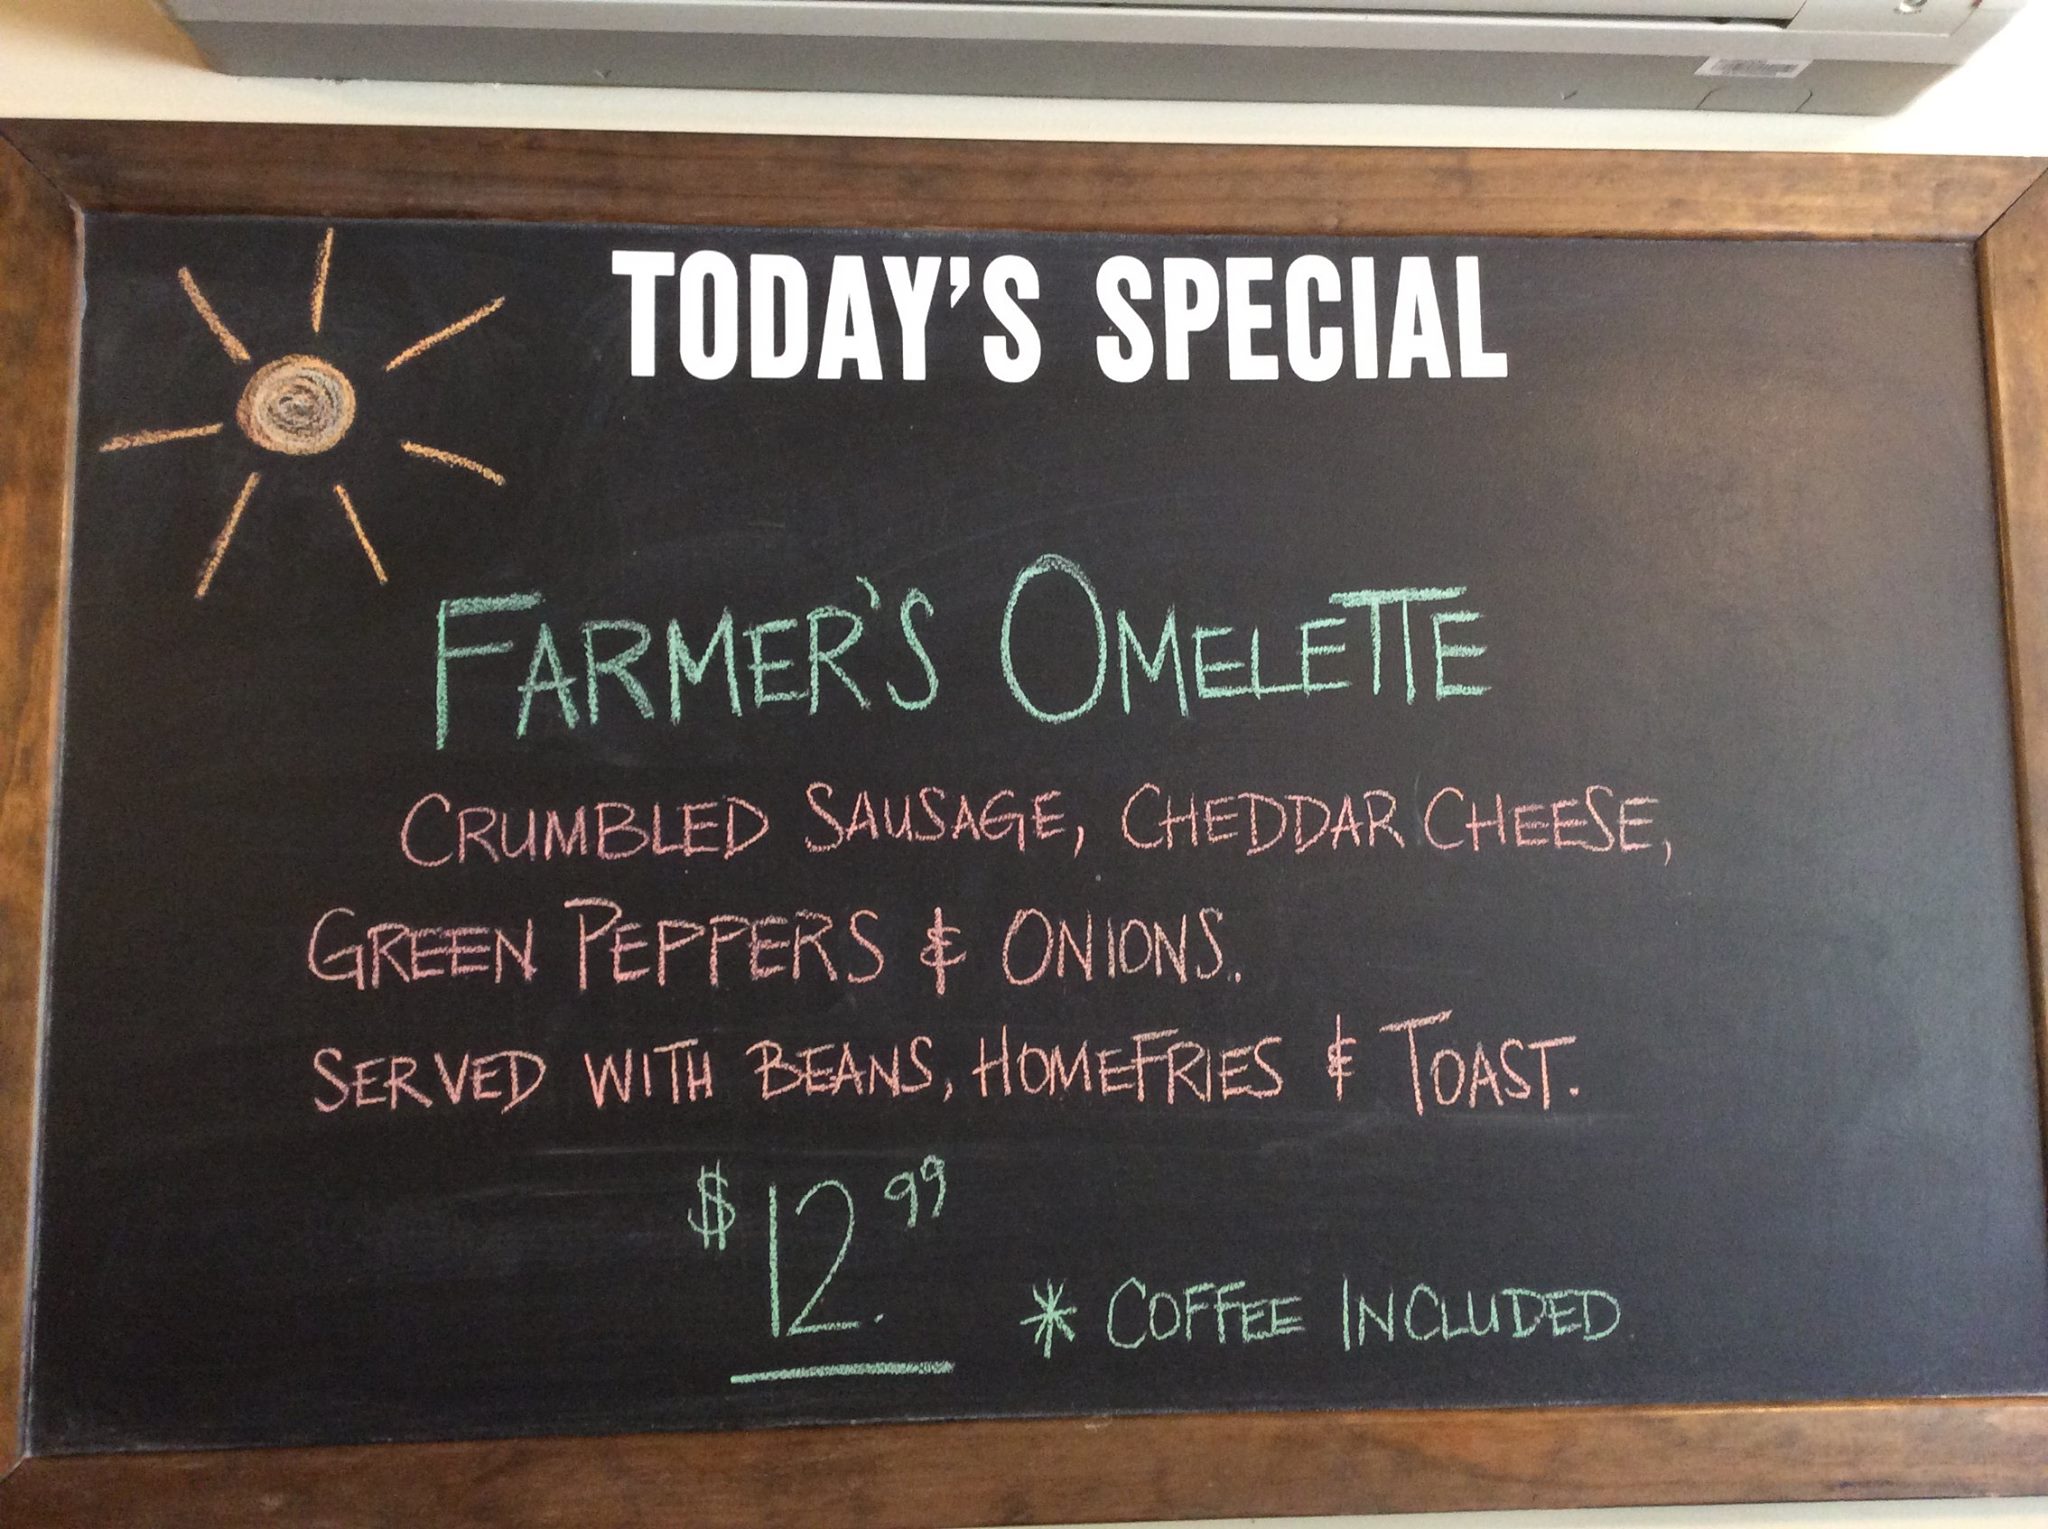 TODAY'S SPECIAL
FARMER'S OMELETTE
CRUMBLED SAUSAGE, CHEDDAR CHEESE,
GREEN PEPPERS & ONIONS.
SERVED WITH BEANS, HOMEFRIES & TOAST.
$12.99
* COFFEE INCLUDED